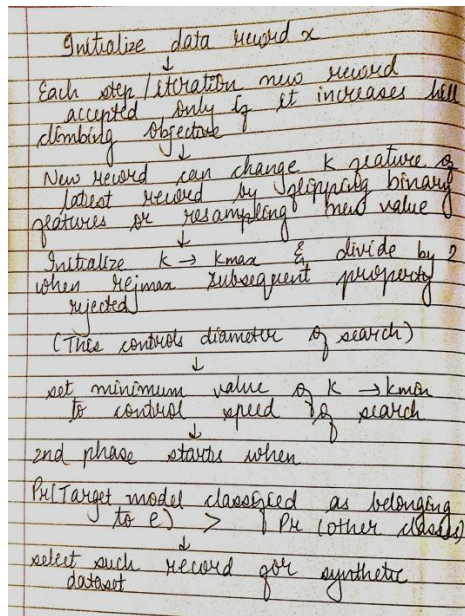 Initialize data record x
↓
Each step/iteration new record
accepted only if it increases hill
climbing objective
↓
New record can change k feature of
latest record by flipping binary
features or resampling new value
↓
Initialize k → kmax & divide by 2
when rejmax subsequent property
rejected
(This controls diameter of search)
↓
set minimum value of k → kmin
to control speed of search
↓
2nd phase starts when
Pr(Target model classified as belonging
to c) > Pr (other classes)
↓
select such record for synthetic
dataset